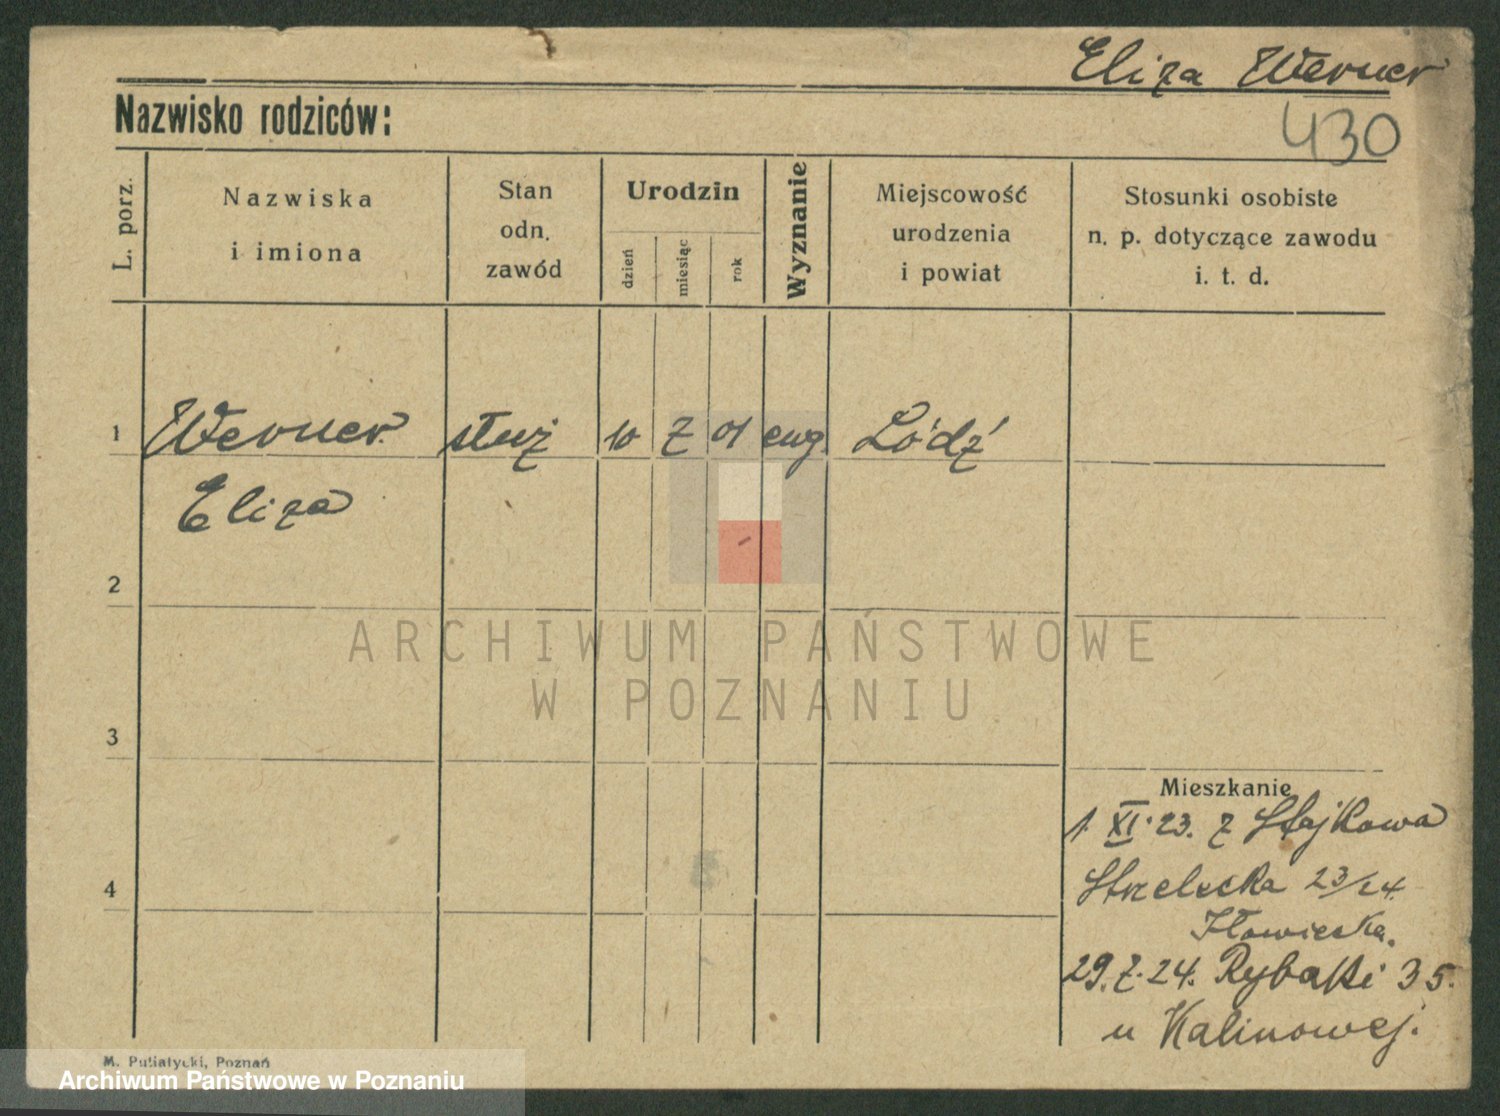 Eliza Werner
Nazwisko rodziców:
430
L. porz.
Nazwiska
i imiona
Stan
odn.
zawód
Urodzin
dzień
miesiąc
rok
Wyznanie
Miejscowość
urodzenia
i powiat
Stosunki osobiste
n. p. dotyczące zawodu
i. t. d.
1 Werner służ 10 7 01 ewg. Łódź
Eliza
2
ARCHIWUM PAŃSTWOWE
W POZNANIU
3
Mieszkanie
1 XI. 23. z Stajkowa
Strzelecka 23/24.
4
Iłowiecka.
29.7.24. Rybaki 35.
u Kalinowej.
M. Putiatycki, Poznań
Archiwum Państwowe w Poznaniu